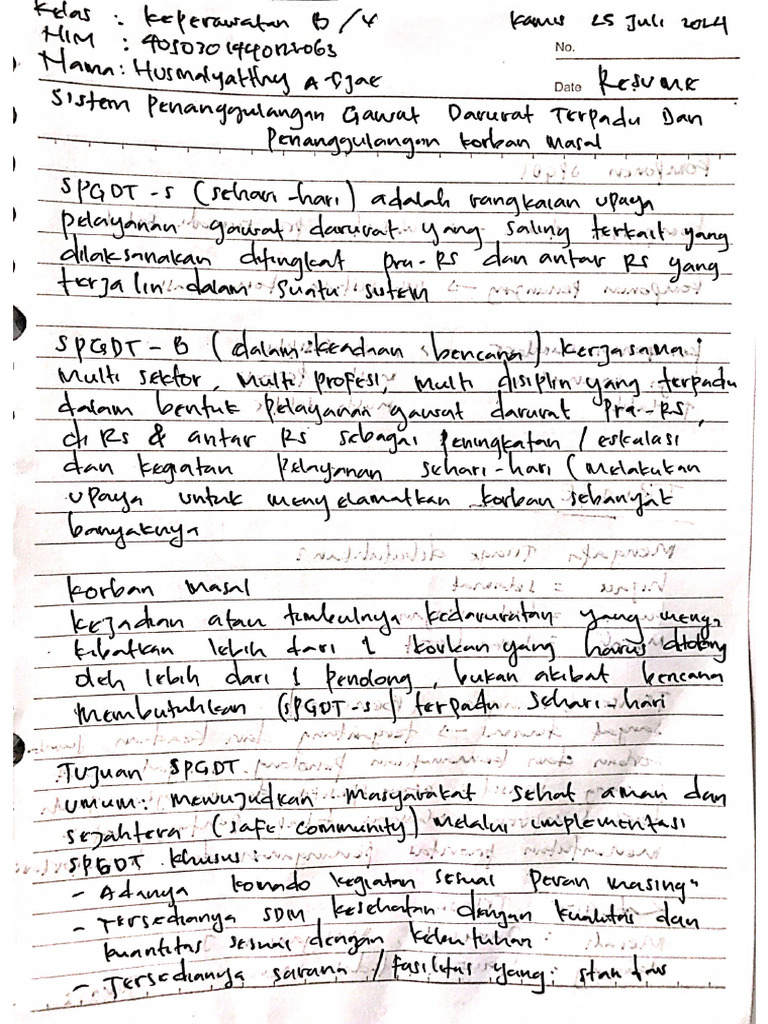 Kelas : Keperawatan B / 4
Kamis 25 Juli 2024
NIM :
No.
Nama : Husmaiyattiny A-Djae
Date Resume
Sistem Penanggulangan Gawat Darurat Terpadu Dan
Penanggulangan Korban Masal
SPGDT-S (sehari-hari) adalah rangkaian upaya
pelayanan gawat darurat yang saling terkait yang
dilaksanakan ditingkat pra-RS dan antar RS yang
terjalin dalam suatu sistem
SPGDT-B (dalam keadaan bencana) kerjasama
Multi sektor, Multi profesi, Multi disiplin yang terpadu
dalam bentuk pelayanan gawat darurat pra-RS,
di RS & antar RS sebagai peningkatan / eskalasi
dan kegiatan pelayanan sehari-hari (melakukan
upaya untuk menyelamatkan korban sebanyak
banyaknya
Korban Masal
Kejadian atau timbulnya kedaruratan yang meng,
kibatkan lebih dari 1 korban yang harus ditolong
oleh lebih dari 1 penolong, bukan akibat bencana
membutuhkan (SPGDT-S) terpadu sehari-hari
Tujuan SPGDT
Umum : mewujudkan masyarakat sehat aman dan
sejahtera (safe community) melalui implementasi
SPGDT khusus :
- Adanya komado kegiatan sesuai peran masing"
- Tersedianya SDM kesehatan dengan kualitas dan
kuantitas sesuai dengan kebutuhan
- Tersedianya sarana / Fasilitas yang standar